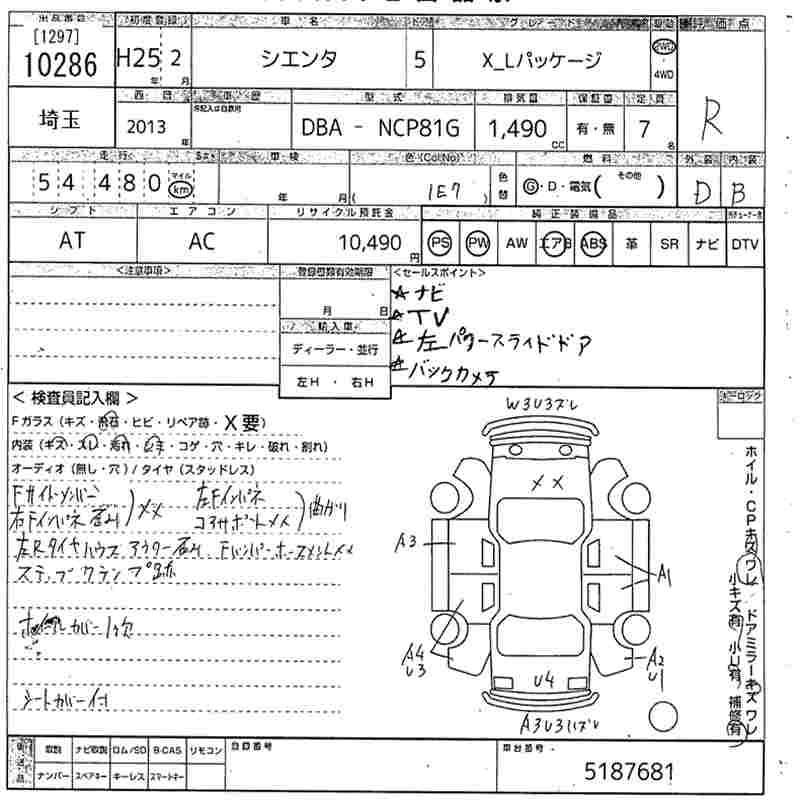 出品番号 初度登録 車名 ドア グレード 駆動 評価点
[1297]
10286 H25年 2月 シエンタ 5 X_Lパッケージ 2WD・4WD R
埼玉 西暦 車歴 型式 排気量 保証書 定員
2013年 DBA - NCP81G 1,490cc 有・無 7名
走行 車検 色(ColNo) 燃料 外装 内装
54480 マイル km 年 月 ( 1E7 ) 色替 G・D・電気( その他 ) D B
シフト エアコン リサイクル預託金 純正装備品
AT AC 10,490円 PS PW AW エアB ABS 革 SR ナビ DTV
<注意事項> 登録書類有効期限 <セールスポイント>
月 日
☆ナビ
☆TV
☆左パワースライドドア
☆バックカメラ
輸入車
ディーラー・並行
左H ・ 右H
< 検査員記入欄 >
Fガラス (キズ・飛石・ヒビ・リペア跡・X要)
内装 (キズ・スレ・汚れ・シミ・コゲ・穴・キレ・破れ・割れ)
オーディオ (無し・穴) / タイヤ (スタッドレス)
Fサイドメンバー
右Fインパネ 凹み ) メメ
左Fインパネ
コアサポートメメ ) 曲がり
左Rタイヤハウス アウター凹み Fバンパーホースメントメメ
ステップクランプ跡
カバー1ヶ欠
シートカバー付
W3U3ズレ
XX
A3
A1
A4
U3
A2
U1
U4
A3U3ハズレ
ホイル・CPキズワレ ドアミラーキズワレ
小キズ有 小U有 補修有
車送品 取説 ナビ取説 ロム/SD B-CAS リモコン 登録番号 車台番号
ナンバー スペアキー キーレス スマートキー 5187681